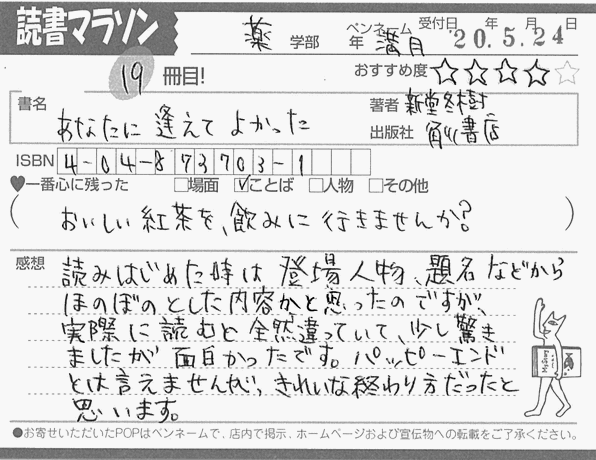 読書マラソン
薬 学部 年 ペンネーム 満月 受付日 年 月 日 20.5.24
19 冊目! おすすめ度 ☆☆☆☆☆
書名 あなたに逢えてよかった
著者 新堂冬樹
出版社 角川書店
ISBN 4-04-873703-1
♥一番心に残った □場面 ☑ことば □人物 □その他
(おいしい紅茶を、飲みに行きませんか?)
感想 読みはじめた時は登場人物、題名などから
ほのぼのとした内容かと思ったのですが、
実際に読むと全然違っていて、少し驚き
ましたが面白かったです。ハッピーエンド
とは言えませんが、きれいな終わり方だったと
思います。
●お寄せいただいたPOPはペンネームで、店内で掲示、ホームページおよび宣伝物への転載をご了承ください。